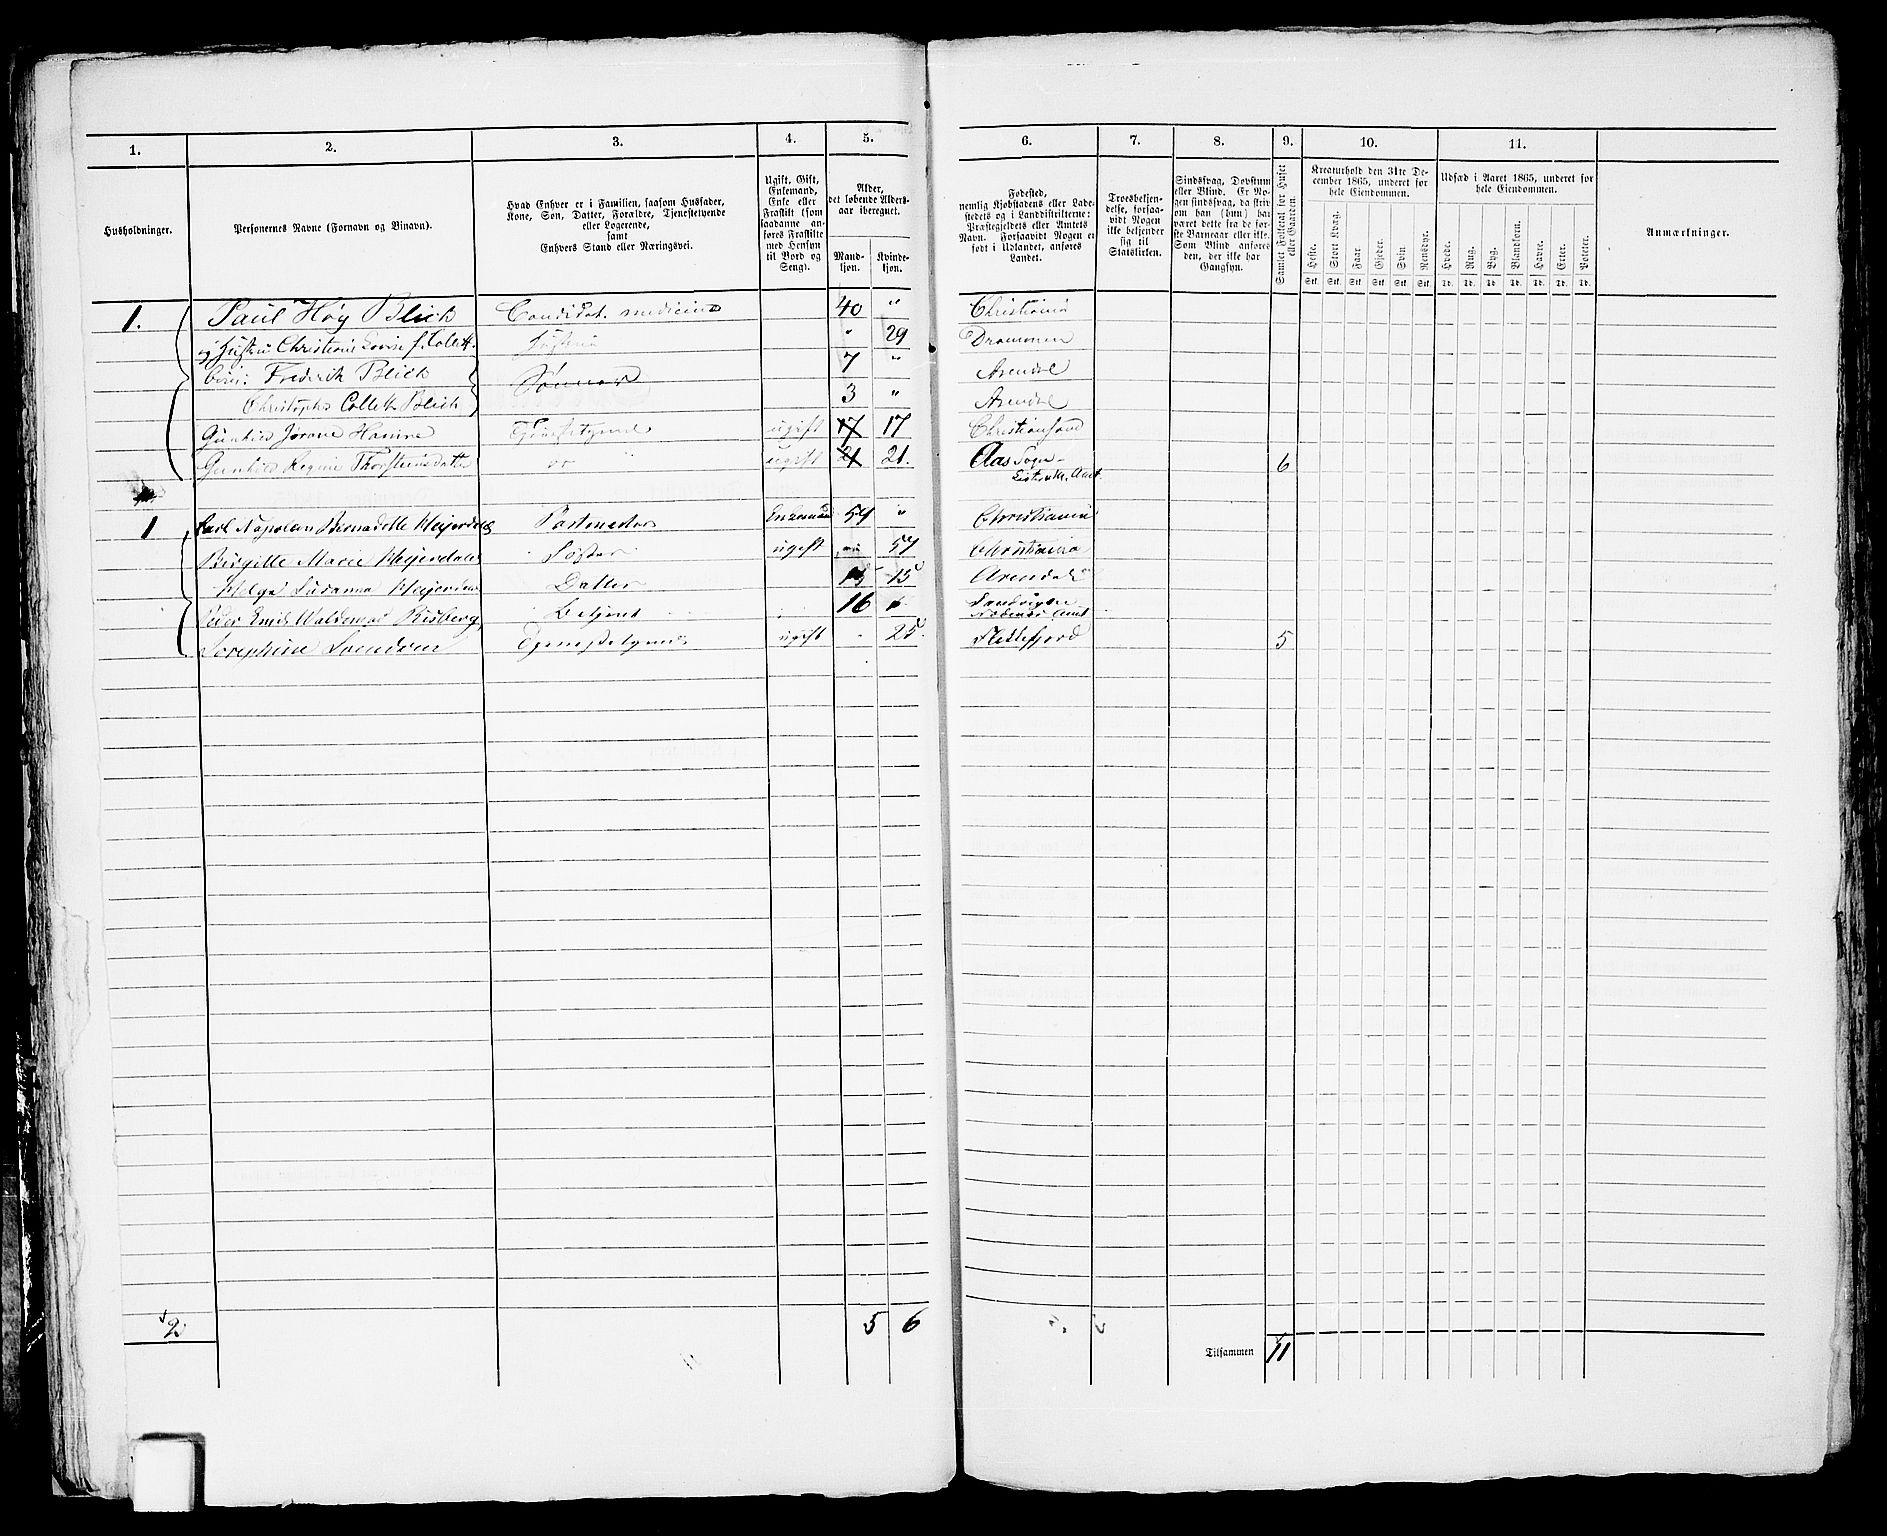 1. 2. 3. 4. 5. 6. 7. 8. 9. 10. 11.
Husholdninger.
Personernes Navne (Fornavn og Binavn).
Hvad Enhver er i Familien, saasom Husfader,
Kone, Søn, Datter, Forældre, Tjenestetyende
eller Logerende,
samt
Enhvers Stand eller Næringsvei.
Ugift, Gift,
Enkemand,
Enke eller
Fraskilt (som
saadanne an-
føres Fraskilte
med Hensyn
til Bord og
Seng).
Alder,
det løbende Alders-
aar iberegnet.
Mand-
kjøn.
Kvinde-
kjøn.
Fødested,
nemlig Kjøbstadens eller Lade-
stedets og i Landdistrikterne:
Præstegjeldets eller Amtets
Navn. Forsaavidt Nogen er
født i Udlandet, anføres
Landet.
Troesbekjen-
delse, forsaa-
vidt Nogen
ikke bekjender
sig til
Statskirken.
Sindssvag, Døvstum
eller Blind. Er No-
gen sindssvag, da skriv
om han (hun) har
været dette fra de før-
ste Barneaar eller ikke.
Som Blind anføres
den, der ikke har
Gangsyn.
Samlet Folketal for Huset
eller Gaarden.
Kreaturhold den 31te De-
cember 1865, underet for
hele Eiendommen.
Heste. Stort Kvæg. Faar. Gjeder. Svin. Rensdyr.
Stk. Stk. Stk. Stk. Stk. Stk.
Udsæd i Aaret 1865, underet for
hele Eiendommen.
Hvede. Rug. Byg. Blandkorn. Havre. Erter. Poteter.
Td. Td. Td. Td. Td. Td. Td.
Anmærkninger.
1. Paul Høy Blich Candidat. medicin 40 " Christiania
og Hustru Christiane Lovise f. Collett. Hustru " 29 Drammen
Frederik Blich 7 " Arendal
Christopher Collett Blich Sønner 3 " Arendal
Jørane Hanine Tjenestetyende ugift 17 17 Christiansand
Regine Thorsteinsdatter do " ugift 21 21. Aas Sogn 6
Amt
1 Carl Napoleon Bernadotte Heijerdahl Postmester Enkemand 59 " Christiania
Birgitte Marie Heijerdahl Søster ugift 57 Christiania
Helga Susanna Heijerdahl Datter 15 15 Arendal
Peder Emil Waldemar Risberg Betjent 16 Sandvigen
Nedenæs Amt
Josephine Svendsen Tjenestetyende ugift - 25. Flekkefjord 5
2 5 6
Tilsammen 11